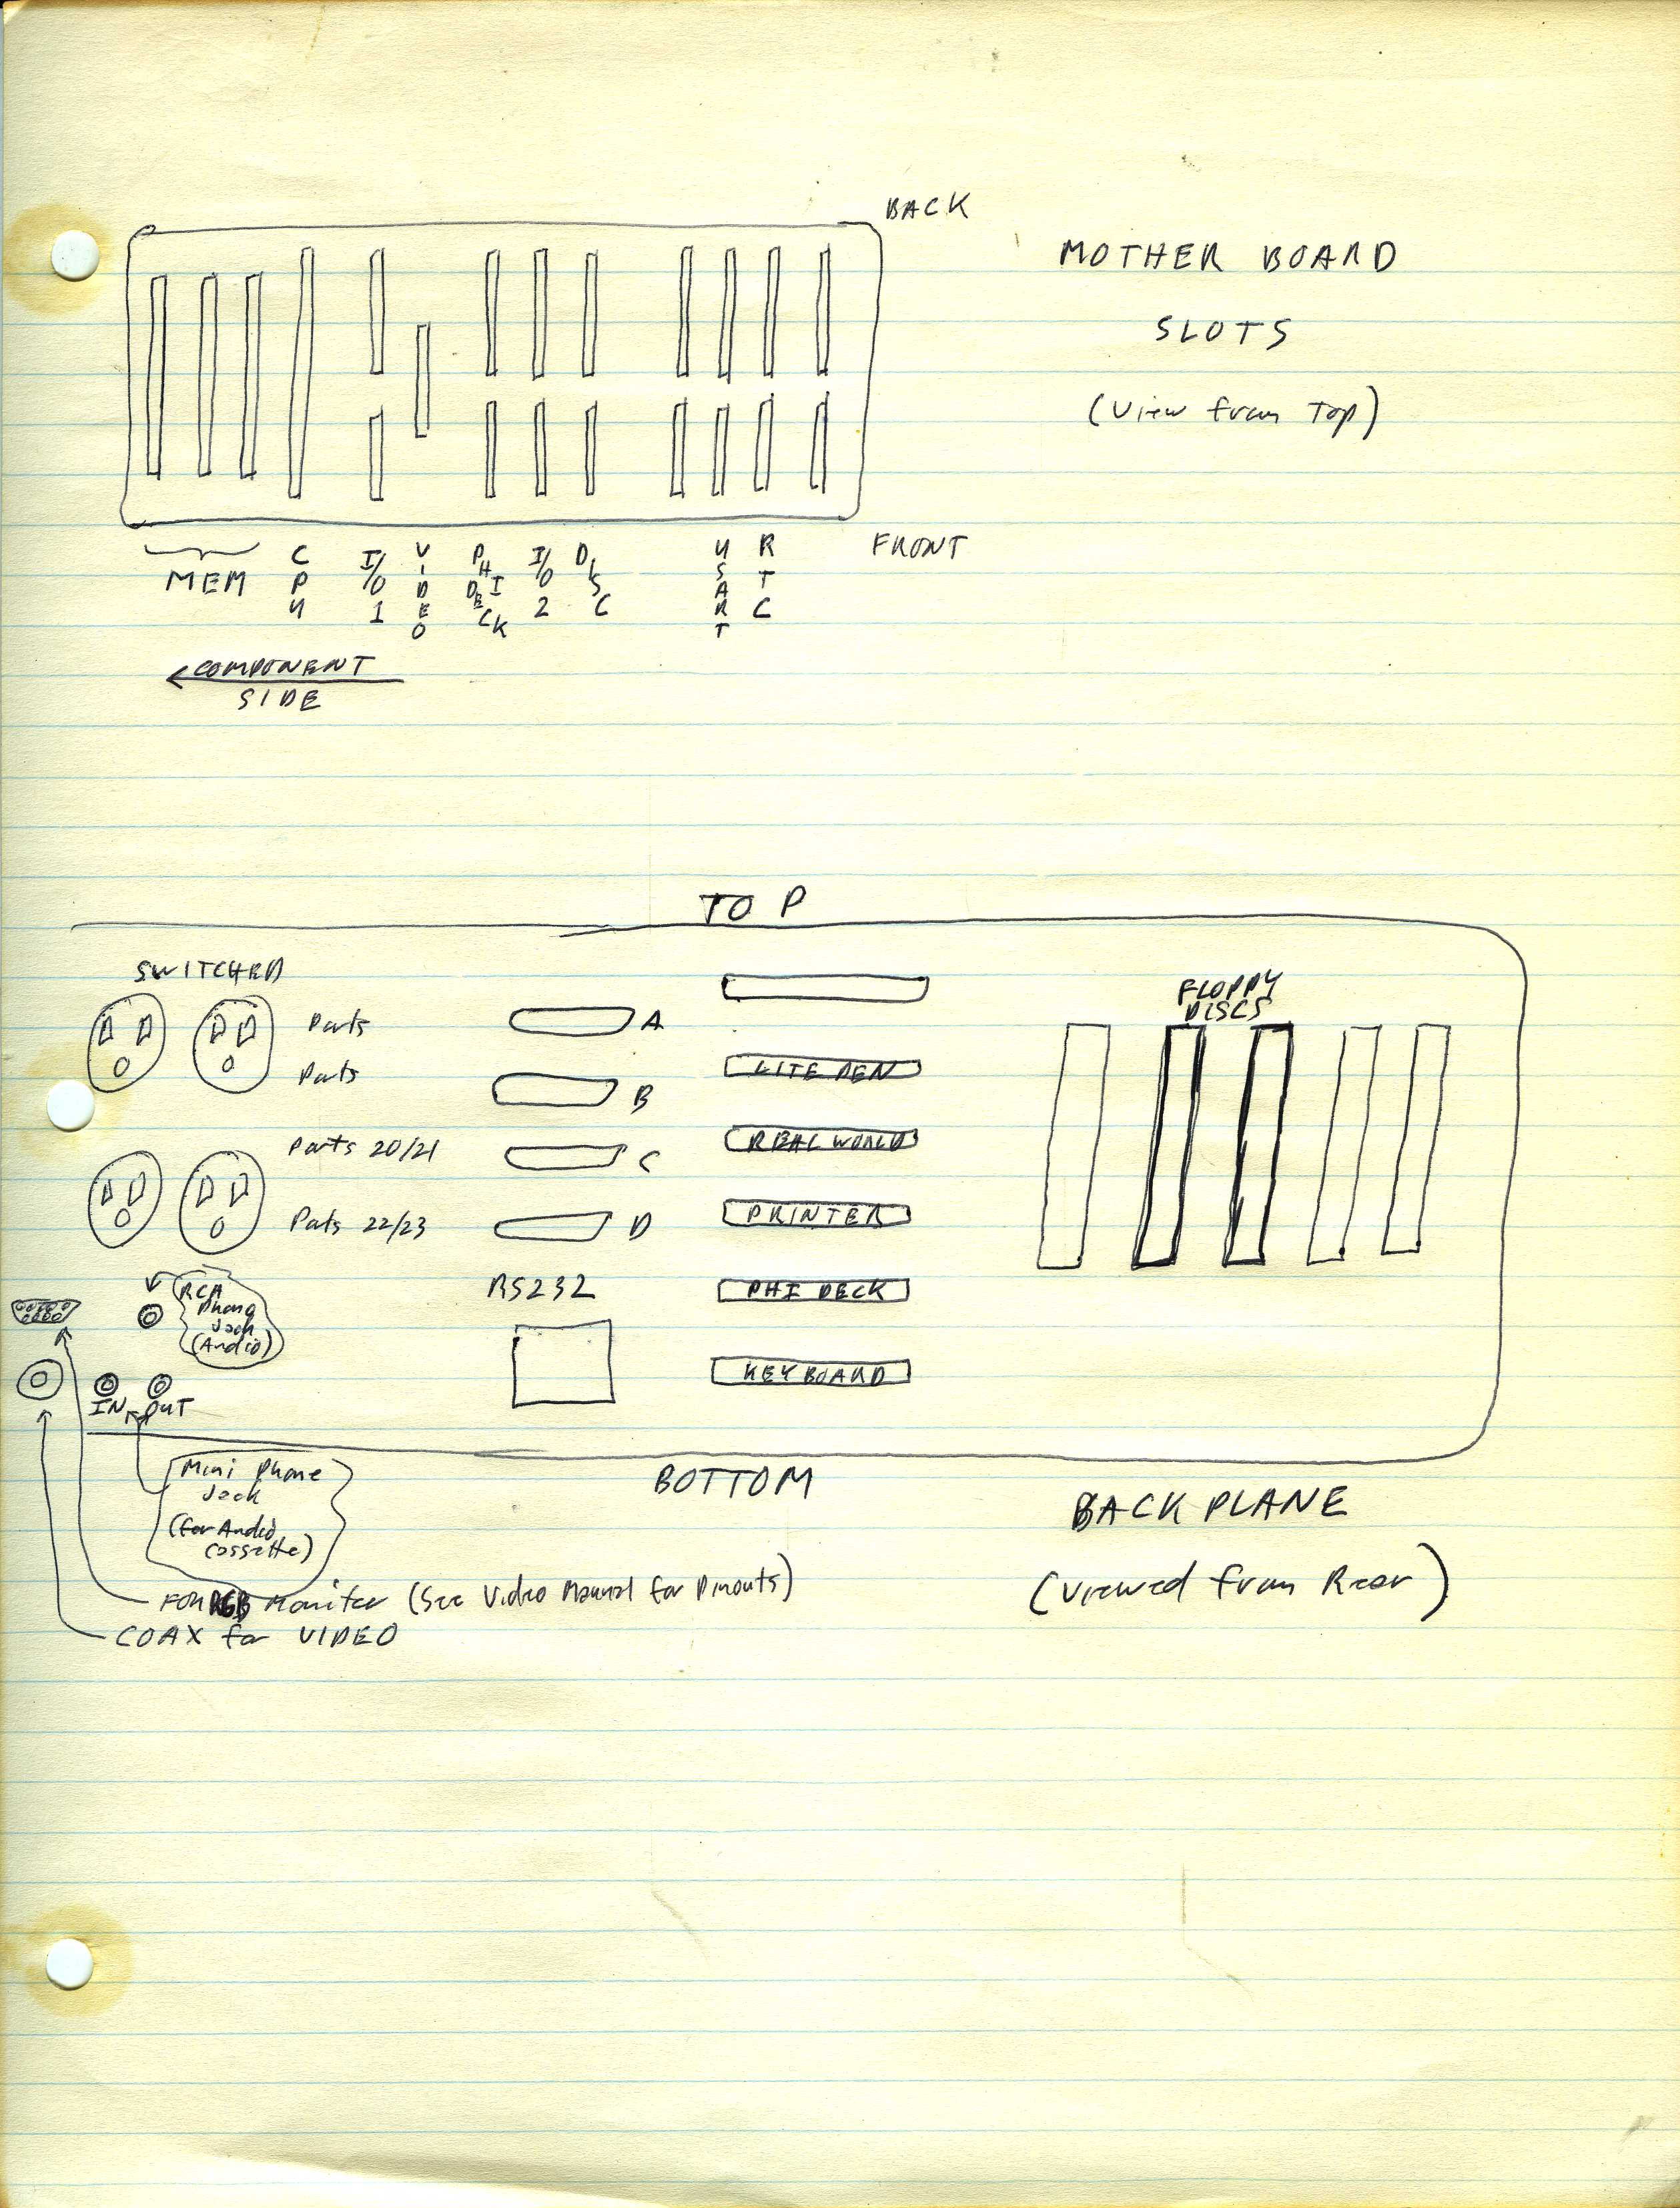 BACK
MOTHER BOARD
SLOTS
(View from Top)
FRONT
MEM
CPU
I/O 1
VIDEO
PHI DECK
I/O 2
DISC
USART
RTC
COMPONENT
SIDE
TOP
SWITCHED
Ports
Ports
Ports 20/21
Ports 22/23
A
B
C
D
RS232
LITE PEN
REAL WORLD
PRINTER
PHI DECK
KEYBOARD
FLOPPY
DISCS
RCA
Phono
Jack
(Audio)
IN OUT
Mini Phone
Jack
(for Audio
Cassette)
FOR RGB Monitor (See Video Manual for Pinouts)
COAX for VIDEO
BOTTOM
BACK PLANE
(Viewed from Rear)